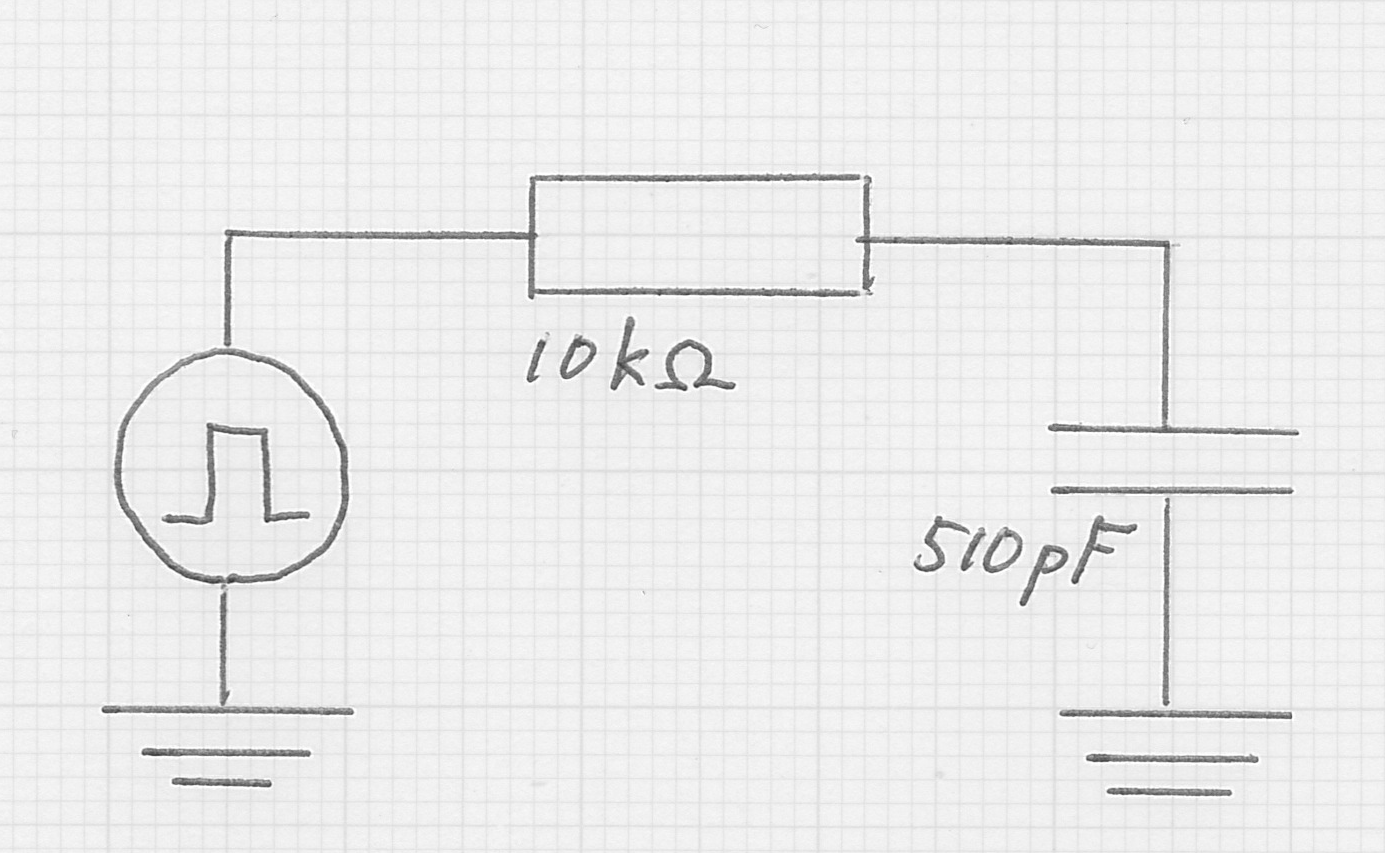 10kΩ
510pF